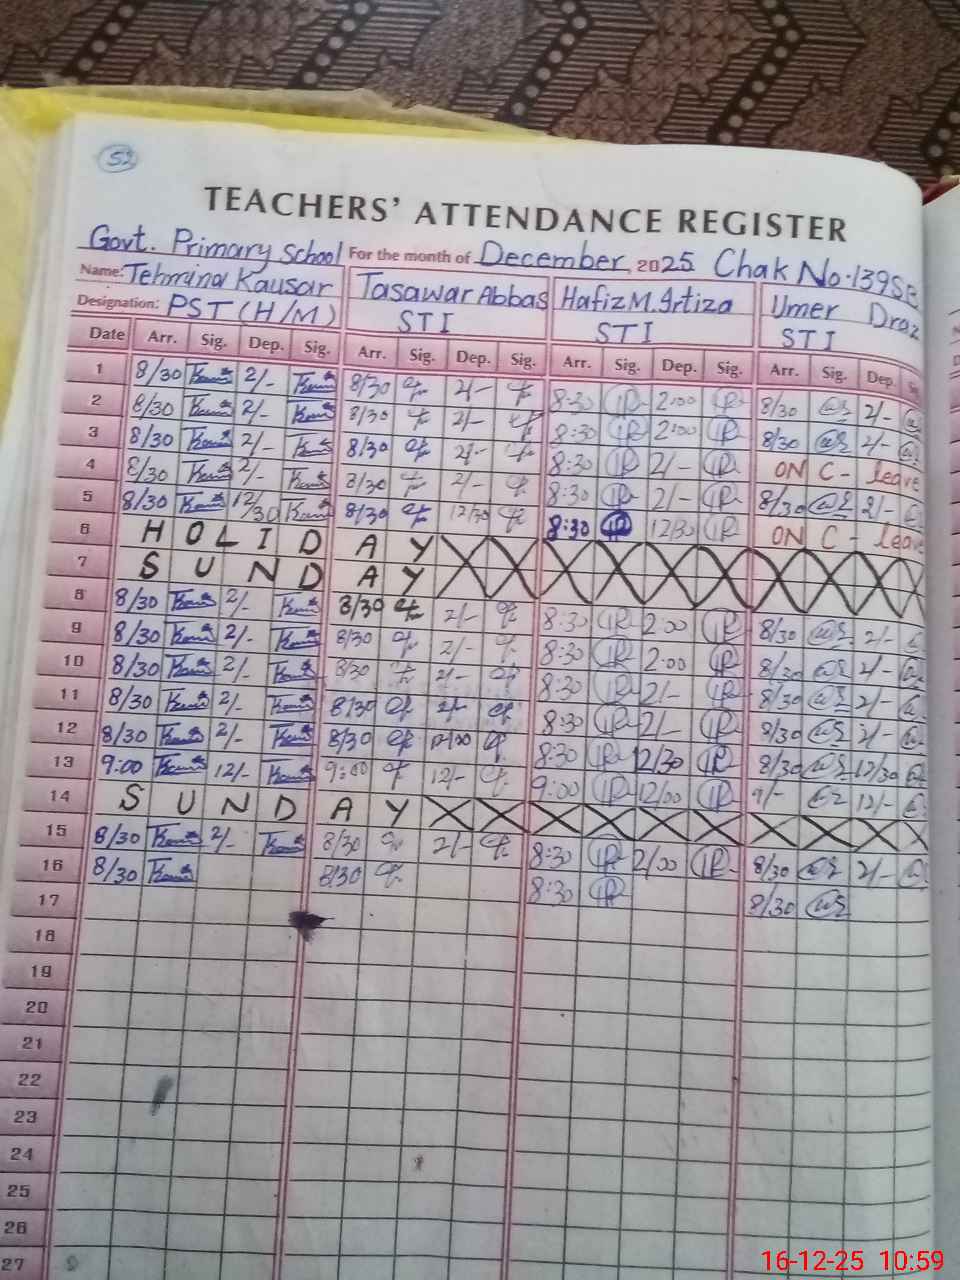 52
TEACHERS' ATTENDANCE REGISTER
Govt. Primary School For the month of December, 2025 Chak No. 139SB
Name: Tehmina Kausar Tasawar Abbas Hafiz M. Irtiza Umer Draz
Designation: PST (H/M) STI STI STI
Date Arr. Sig. Dep. Sig. Arr. Sig. Dep. Sig. Arr. Sig. Dep. Sig. Arr. Sig. Dep.
1 8/30 2/- 8/30 2/- 8:30 2:00 8/30 2/-
2 8/30 2/- 8/30 2/- 8:30 2:00 8/30 2/-
3 8/30 2/- 8/30 2/- 8:30 2/- ON C- leave
4 8/30 2/- 8/30 2/- 8:30 2/- 8/30 2/-
5 8/30 12/30 8/30 12/30 8:30 12/30 ON C- leave
6 HOLIDAY
7 SUNDAY
8 8/30 2/- 8/30 2/- 8:30 2:00 8/30 2/-
9 8/30 2/- 8/30 2/- 8:30 2:00 8/30 2/-
10 8/30 2/- 8/30 2/- 8:30 2/- 8/30 2/-
11 8/30 2/- 8/30 2/- 8:30 2/- 8/30 2/-
12 8/30 2/- 8/30 8:30 12/30 8/30 12/30
13 9:00 12/- 9:00 12/- 9:00 12/00 9/- 12/-
14 SUNDAY
15 8/30 2/- 8/30 2/- 8:30 2/00 8/30 2/-
16 8/30 8/30 8:30 8/30
17
18
19
20
21
22
23
24
25
26
27
16-12-25 10:59